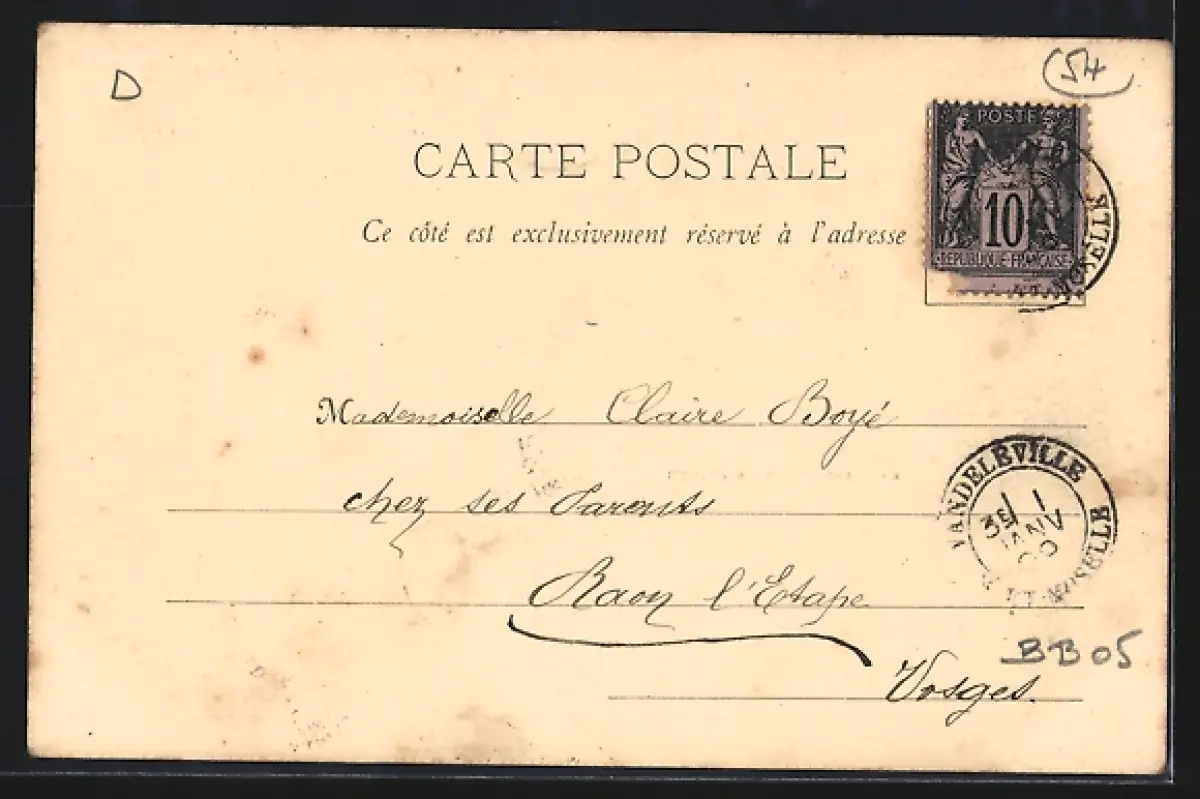 D
54
CARTE POSTALE
Ce côté est exclusivement réservé à l'adresse
POSTE
10
REPUBLIQUE FRANÇAISE
MOSELLE
Mademoiselle Claire Boyé
chez ses Parents
Raon l'Etape
Vosges.
VANDELÉVILLE
1
JANV
ET-MOSELLE
BB05